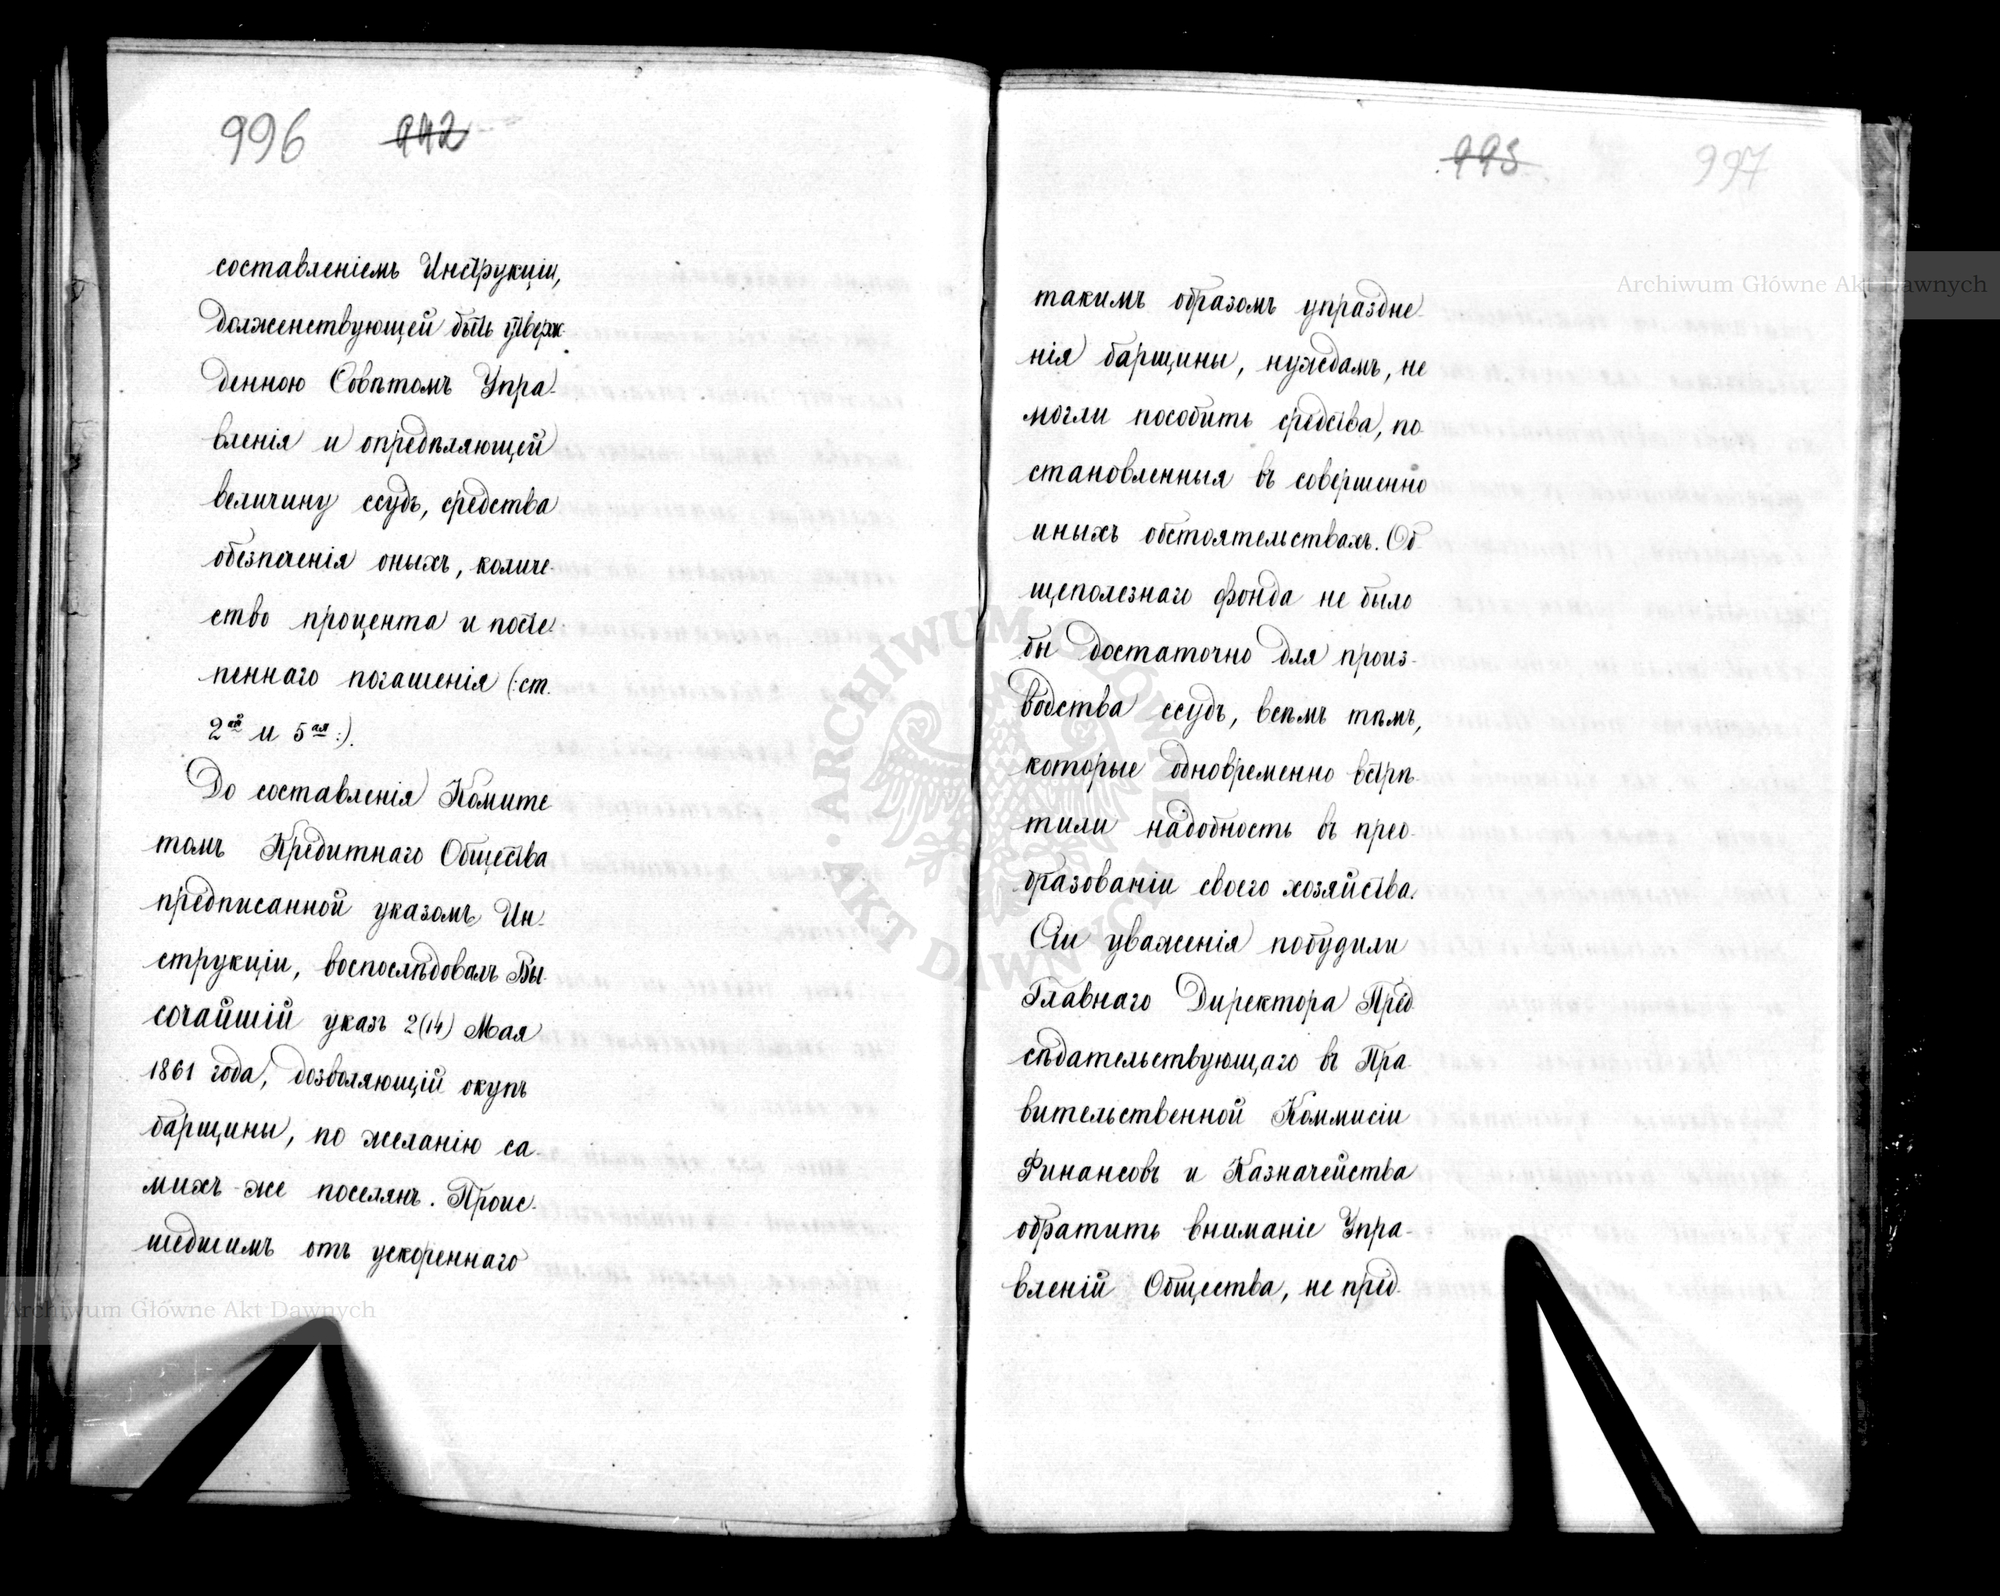 996 942
составленіемъ Инструкціи,
долженствующей быть утверж-
денною Совѣтомъ Упра-
вленія и опредѣляющей
величину ссудъ, средства
обезпеченія оныхъ, количе-
ство процента и посте-
пеннаго погашенія (:ст.
2ая и 5ая:).
До составленія Комите
томъ Кредитнаго Общества
предписанной указомъ Ин-
струкціи, воспослѣдовалъ Вы-
сочайшій указъ 2(14) Мая
1861 года, дозволяющій окупъ
барщины, по желанію са-
михъ-же поселянъ. Проис-
шедшимъ отъ ускореннаго
993 997
такимъ образомъ упраздне-
нія барщины, нуждамъ, не
могли пособить средства, по
становленныя въ совершенно
иныхъ обстоятельствахъ. Об-
щеполезнаго фонда не было
бы достаточно для произ-
водства ссудъ, всѣмъ тѣмъ,
которые одновременно встрѣ-
тили надобность въ прео-
бразованіи своего хозяйства.
Сіи уваженія побудили
Главнаго Директора Пред
сѣдательствующаго въ Пра-
вительственной Коммисіи
Финансовъ и Казначейства
обратить вниманіе Упра-
вленій Общества, не пред-
Archiwum Główne Akt Dawnych
Archiwum Główne Akt Dawnych
ARCHIWUM GŁÓWNE AKT DAWNYCH